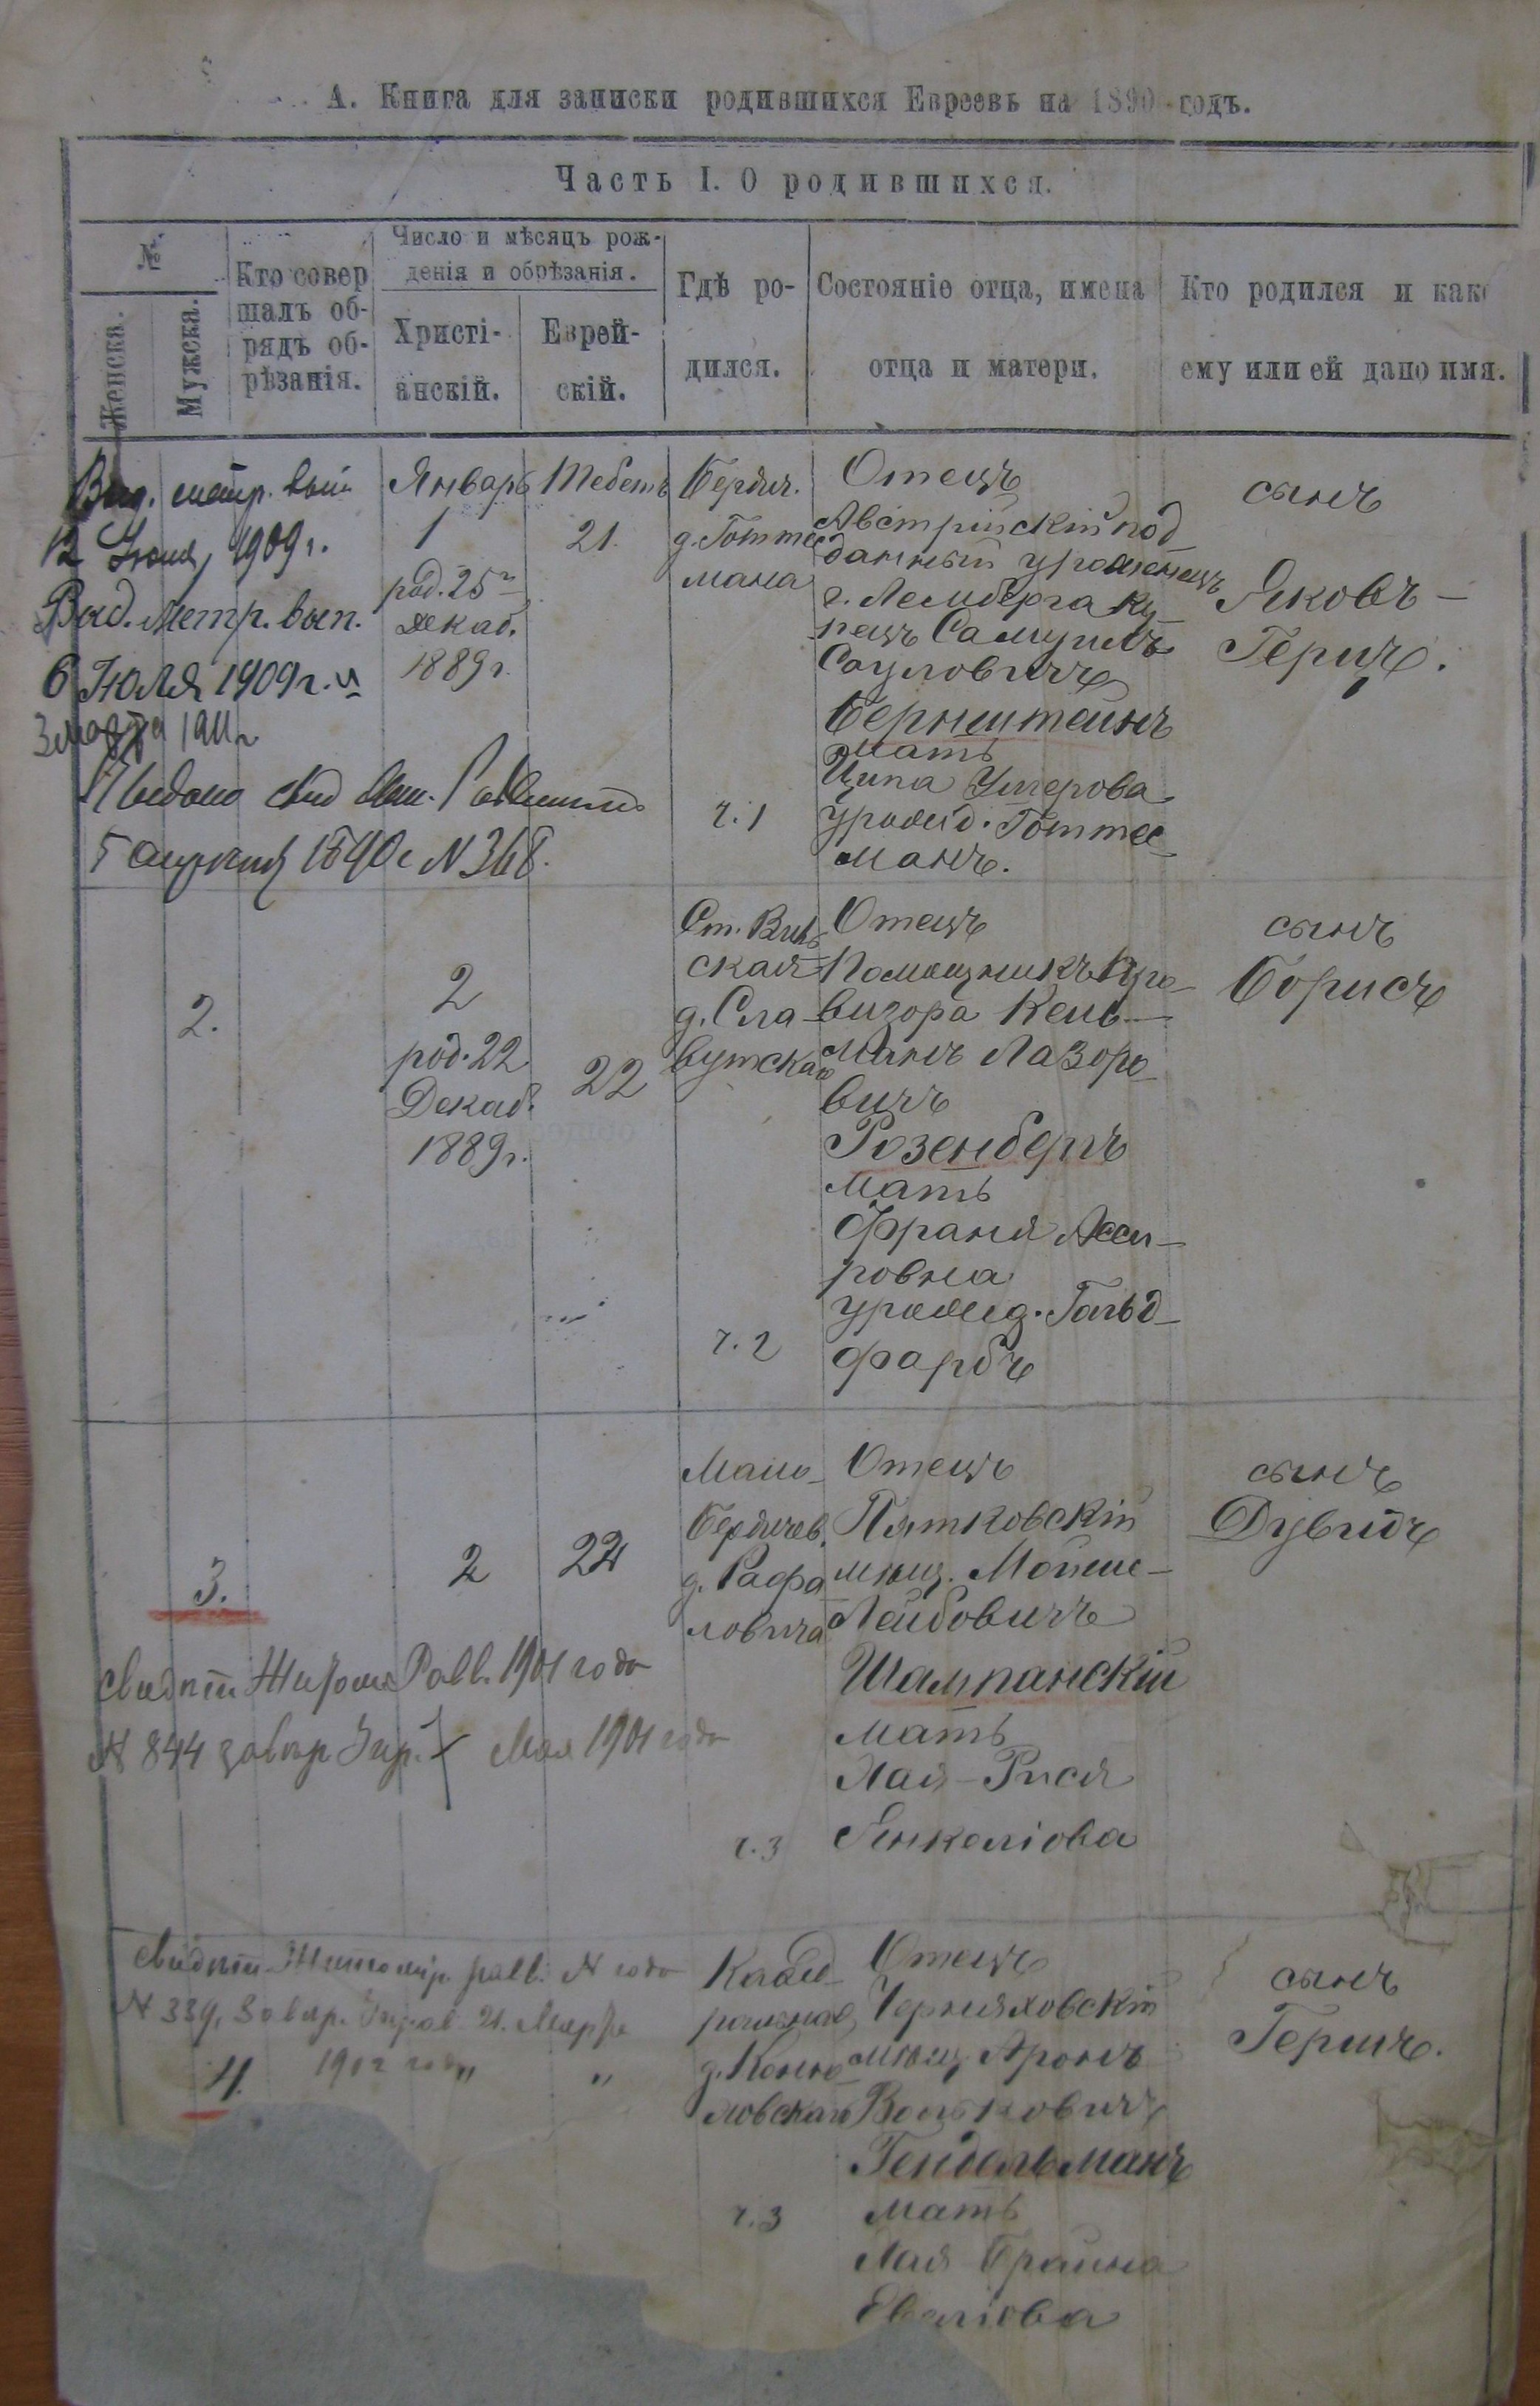 А. Книга для записки родившихся Евреевъ на 1890 годъ.
Часть I. О родившихся.
№
Женска.
Мужска.
Кто совер
шалъ об-
рядъ об-
рѣзанія.
Число и мѣсяцъ рож-
денія и обрѣзанія.
Христі-
анскій.
Еврей-
скій.
Гдѣ ро-
дился.
Состояніе отца, имена
отца и матери.
Кто родился и как
ему или ей дано имя.
Выд. метр. вып.
12 Іюня 1909 г.
Выд. Метр. вып.
6 Іюля 1909 г. и
3 марта 1911 г
1890 г N 368.
Январь
1
род. 25
декаб.
1889 г.
Тебетъ
21.
Бердич.
д. Готтес
мана
ч. 1
Отецъ
Австрійскій под
данный уроженецъ
г. Лемберга Ку
пецъ Самуилъ
Сауловичъ
Бернштейнъ
мать
Ципа Умерова
урожд. Готтес
манъ.
сынъ
Яковъ-
Гершъ.
2.
2
род. 22
Декаб.
1889 г.
22
Ст. Виль
ская
д. Сла-
вутскаго
ч. 2
Отецъ
Помощникъ Про-
визора Кель-
манъ Лазоро-
вичъ
Розенбергъ
мать
Франя
ровна
урожд. Гольд-
фарбъ
сынъ
Борисъ
3.
2
22
Мало-
Бердичев.
д. Рафа
ловича
ч. 3
Отецъ
Пятковскій
мѣщ. Мойше-
Лейбовичъ
Шампанскій
мать
Хая-Рися
Янкеліова
сынъ
Дувидъ
Равв. 1901 года
N 844 Мая 1901 года
Житомір. равв. N года
N 339, 21. Марта
1902 года
4.
"
Кафед-
ральная
д.
ч. 3
Отецъ
Черняховскій
мѣщ Аронъ
Вольковичъ
Гендельманъ
мать
Хая Брайна
сынъ
Гершъ.